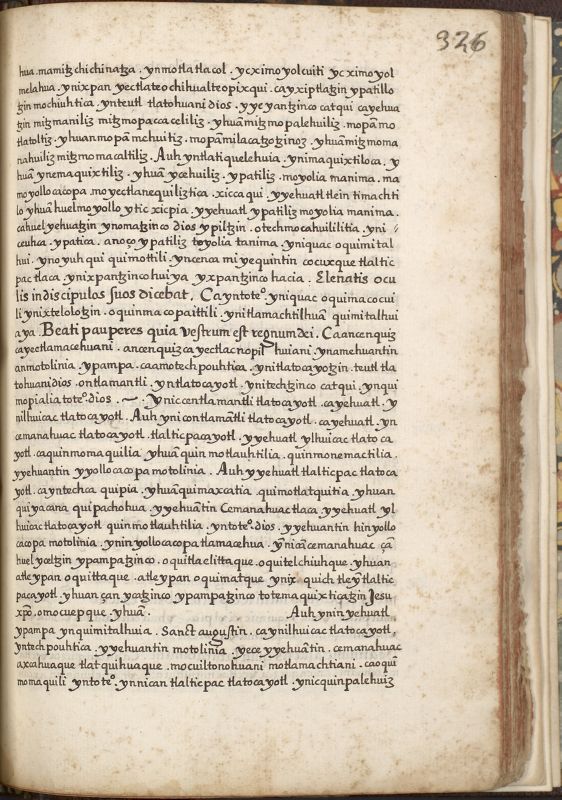 326
hua. mamitz chichinatza. ynmotlatlacol. ycximoyolcuiti ycximoyol
melahua. ynixpan yectlateochihualteopixqui. cayxiptlatzin ypatillo
tzin mochiuhtica. ynteutl tlatohuani dios. yyeyantzinco catqui cayehua
tzin mitzmaniliz mitzmopaccaceliliz. yhuā mitzmopalehuiliz. mopāmo
tlatoltiz. yhuan mopā mchuitiz. mopāmilacatzotzinoz. yhuā mitzmoma
nahuiliz mitzmomacaltiliz. Auh yntlatiquelehuia. ynimaquixtiloca. y
huā ynemaquixtiliz. yhuā ycehuiliz. ypatiliz. moyolia manima. ma
moyollocacopa. moyectlanequiliztica. xiccaqui. yyehuatl tlein timachti
lo yhuā huelmoyollo ytic xicpia. yyehuatl ypatiliz moyolia manima.
cahuel yehuatzin ynomatzinco dios ypiltzin. otechmocahuililitia. yni
ceuhca. ypatica. anoço ypatiliz toyolia tanima. yniquac oquimital
hui. ynoyuh qui quimottili. yncenca miyequintin cocuxque tlaltic
pac tlaca. ynixpantzinco huiya yxpantzinco hacia. Elenatis ocu
lis in discipulos suos dicebat. Caynteteº. yniquac oquimacocui
li ynixtelolotzin. oquinmocpaittili. ynitlamachtilhuā quimitalhui
aya. Beati pauperes quia vestrum est regnum dei. Caancenquiz
cayectlamacehuani. ancenquizcayectlacnopil huiani. ynamehuantin
anmotolinia. ypampa. caamotechpouhtica. ynitlatocayotzin. teutl tla
tohuani dios. ontlamantli. yntlatocayotl. ynitechtzinco catqui. ynqui
mopialia toteº. dios. ~. ynic centlamantli tlatocayotl. cayehuatl. y
nilhuicac tlatocayotl. Auh ynicontlamātli tlatocayotl. cayehuatl. yn
cemanahuac tlatocayotl. tlalticpacayotl. yyehuatl ylhuicac tlatoca
yotl. caquinmomaquilia. yhuā quinmotlauhtilia. quinmonemactilia.
yyehuantin yyollocacopa motolinia. Auh yyehuatl tlalticpac tlatoca
yotl. cayntechca quipia. yhuā quimaxcatia. quimotlatquitia. yhuan
quiyacana quipachohua. yyehuantin Cemanahuac tlaca. yyehuatl yl
huicac tlatocayotl quinmotlauhtilia. yntoteº. dios. yyehuantin hinyollo
cacopa motolinia. yninyollocacopa tlamacehua. ynicā cemanahuac çā
huel yceltzin ypampatzinco. oquitlaelittaque. oquitelchiuhque. yhuan
atleypan oquittaque. atleypan oquimatque ynix quich tleȳ tlaltic
pacayotl. yhuan çan ycatzinco ypampatzinco totemaquixticatzin Jesu
xpō. omocuepque. yhuā. Auh ynin yehuatl
ypampa ynquimitalhuia. Sanct augustin. caynilhuicac tlatocayotl,
yntechpouhtica. yyehuantin motolinia. yece yyehuātin. cemanahuac
axcahuaque tlatquihuaque. mocuiltonohuani motlamachtiani. caoqui
momaquili yntoteº. ynnican tlalticpac tlatocayotl. ynic quinpalehuiz